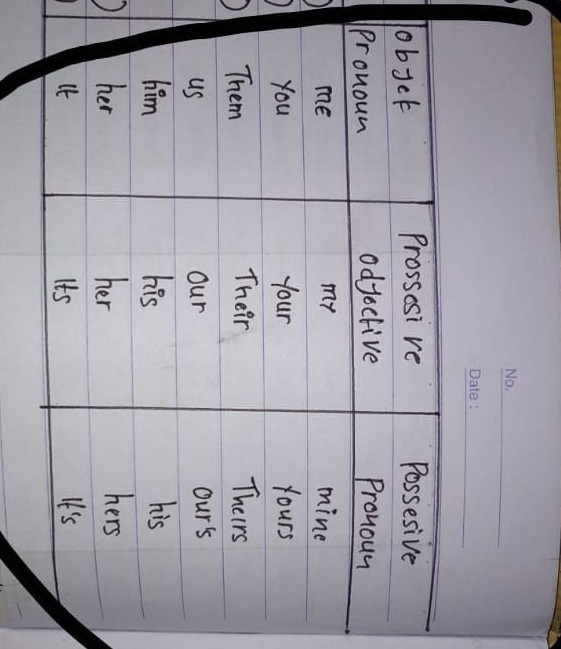 No.
Date :
objek Prossesive Possesive
Pronoun adjective Pronoun
me my mine
You Your Yours
Them Their Theirs
us our our's
him his his
her her hers
It Its It's